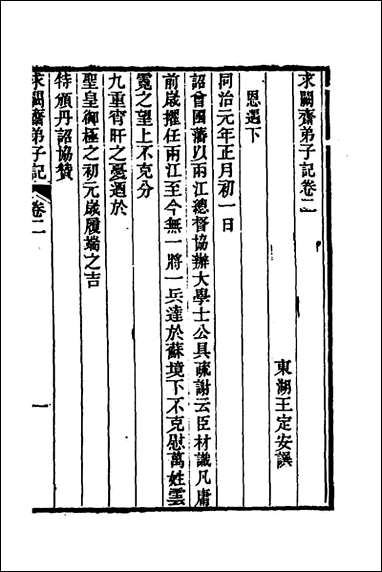 求闕齋弟子記卷二
東湖王定安譔
恩遇下
同治元年正月初一日
詔曾國藩以兩江總督協辦大學士公具疏謝云臣材識凡庸
前歲擢任兩江至今無一將一兵達於蘇境下不克慰萬姓雲
霓之望上不克分
九重宵旰之憂迺於
聖皇御極之初元歲履端之吉
特頒丹詔協贊
求闕齋弟子記
卷二
一